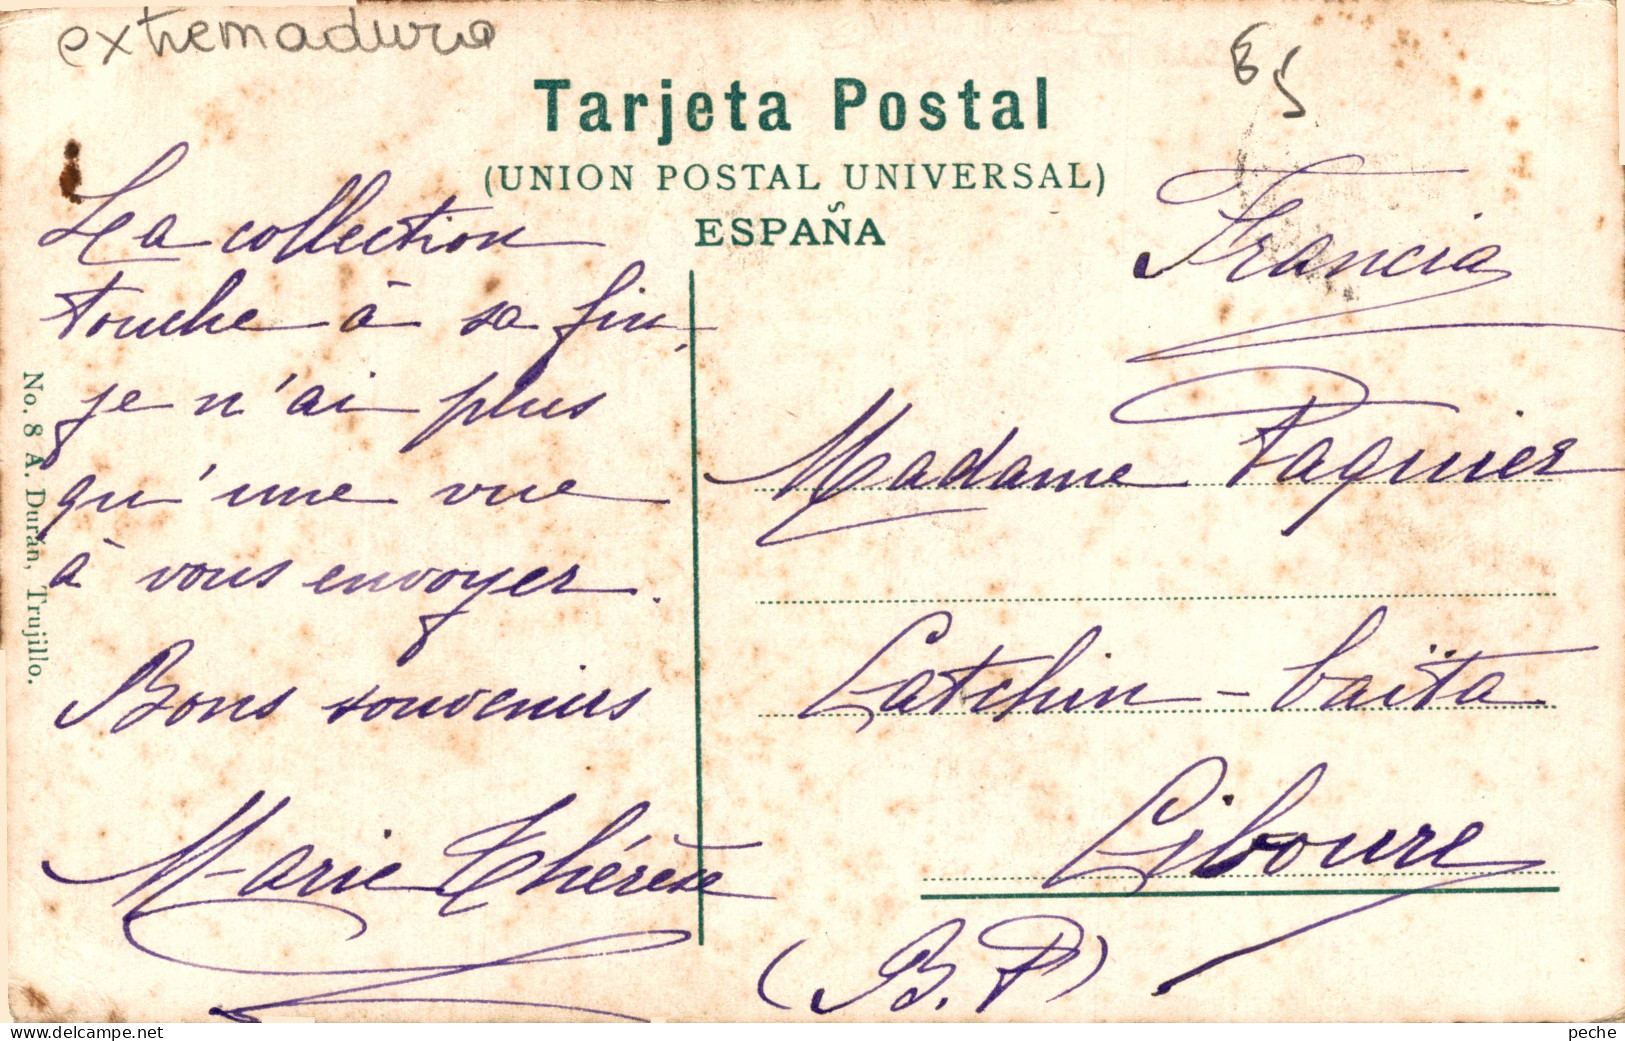 extremadura
85
Tarjeta Postal
(UNION POSTAL UNIVERSAL)
ESPAÑA
La collection
touche à sa fin,
je n'ai plus
qu'une vue
à vous envoyer.
Bons souvenirs
Marie Thérèse
No. 8 A. Durán, Trujillo.
Francia
Madame Paquier
Latchin-baïta
Ciboure
(B.P)
peche